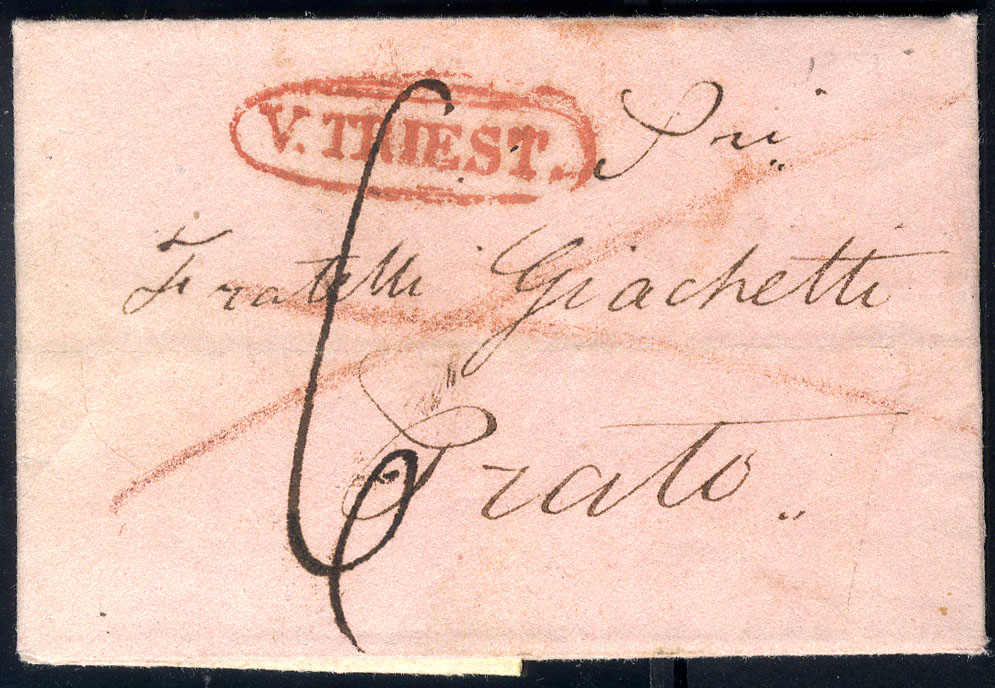 V. TRIEST.
Fratelli Giachetti
Prato
6